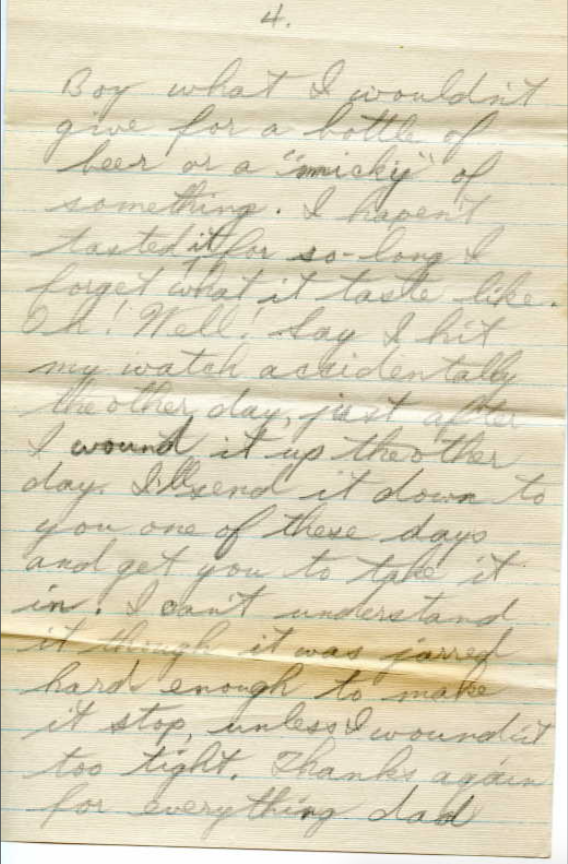 4.
Boy what I wouldn't
give for a bottle of
beer or a "micky" of
something. I haven't
tasted it for so-long I
forget what it taste like.
Oh! Well! Say I hit
my watch accidentally
the other day, just after
I wound it up the other
day. I'll send it down to
you one of these days
and get you to take it
in. I can't understand
it though it was jarred
hard enough to make
it stop, unless I wound it
too tight. Thanks again
for everything dad